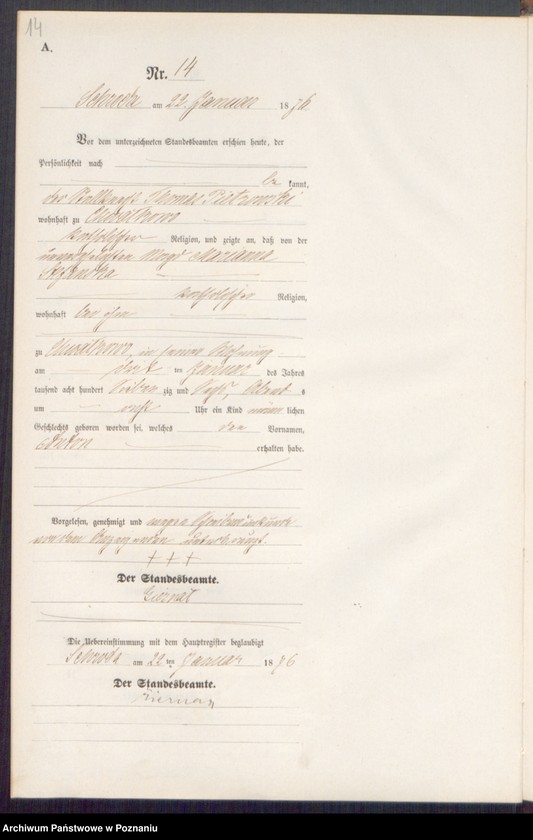 14
A.
Nr. 14
Schroda am 22. Januar 1876
Vor dem unterzeichneten Standesbeamten erschien heute, der
Persönlichkeit nach
be kannt,
der Thomas Pietrowski
wohnhaft zu
katholischer Religion, und zeigte an, daß von der
unverehelichten Magd Marianna
katholischer Religion,
wohnhaft bei ihm
zu in seiner Wohnung
am ten Januar des Jahres
tausend acht hundert sieben zig und sechs, Abends
um Uhr ein Kind männ lichen
Geschlechts geboren worden sei, welches den Vornamen,
Anton erhalten habe.
Vorgelesen, genehmigt und wegen Schreibensunkunde
von dem unterkreuzt.
+++
Der Standesbeamte.
Die Uebereinstimmung mit dem Hauptregister beglaubigt
Schroda am 22ten Januar 1876
Der Standesbeamte.
Archiwum Państwowe w Poznaniu